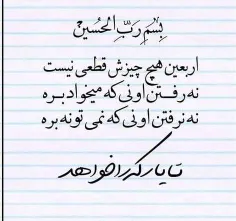 بِسْمِ رَبِّ الحُسَین
اربعین هیچ چیزش قطعی نیست
نه رفتن اونی که میخواد بره
نه نرفتن اونی که نمی تونه بره
تا یار که را خواهد